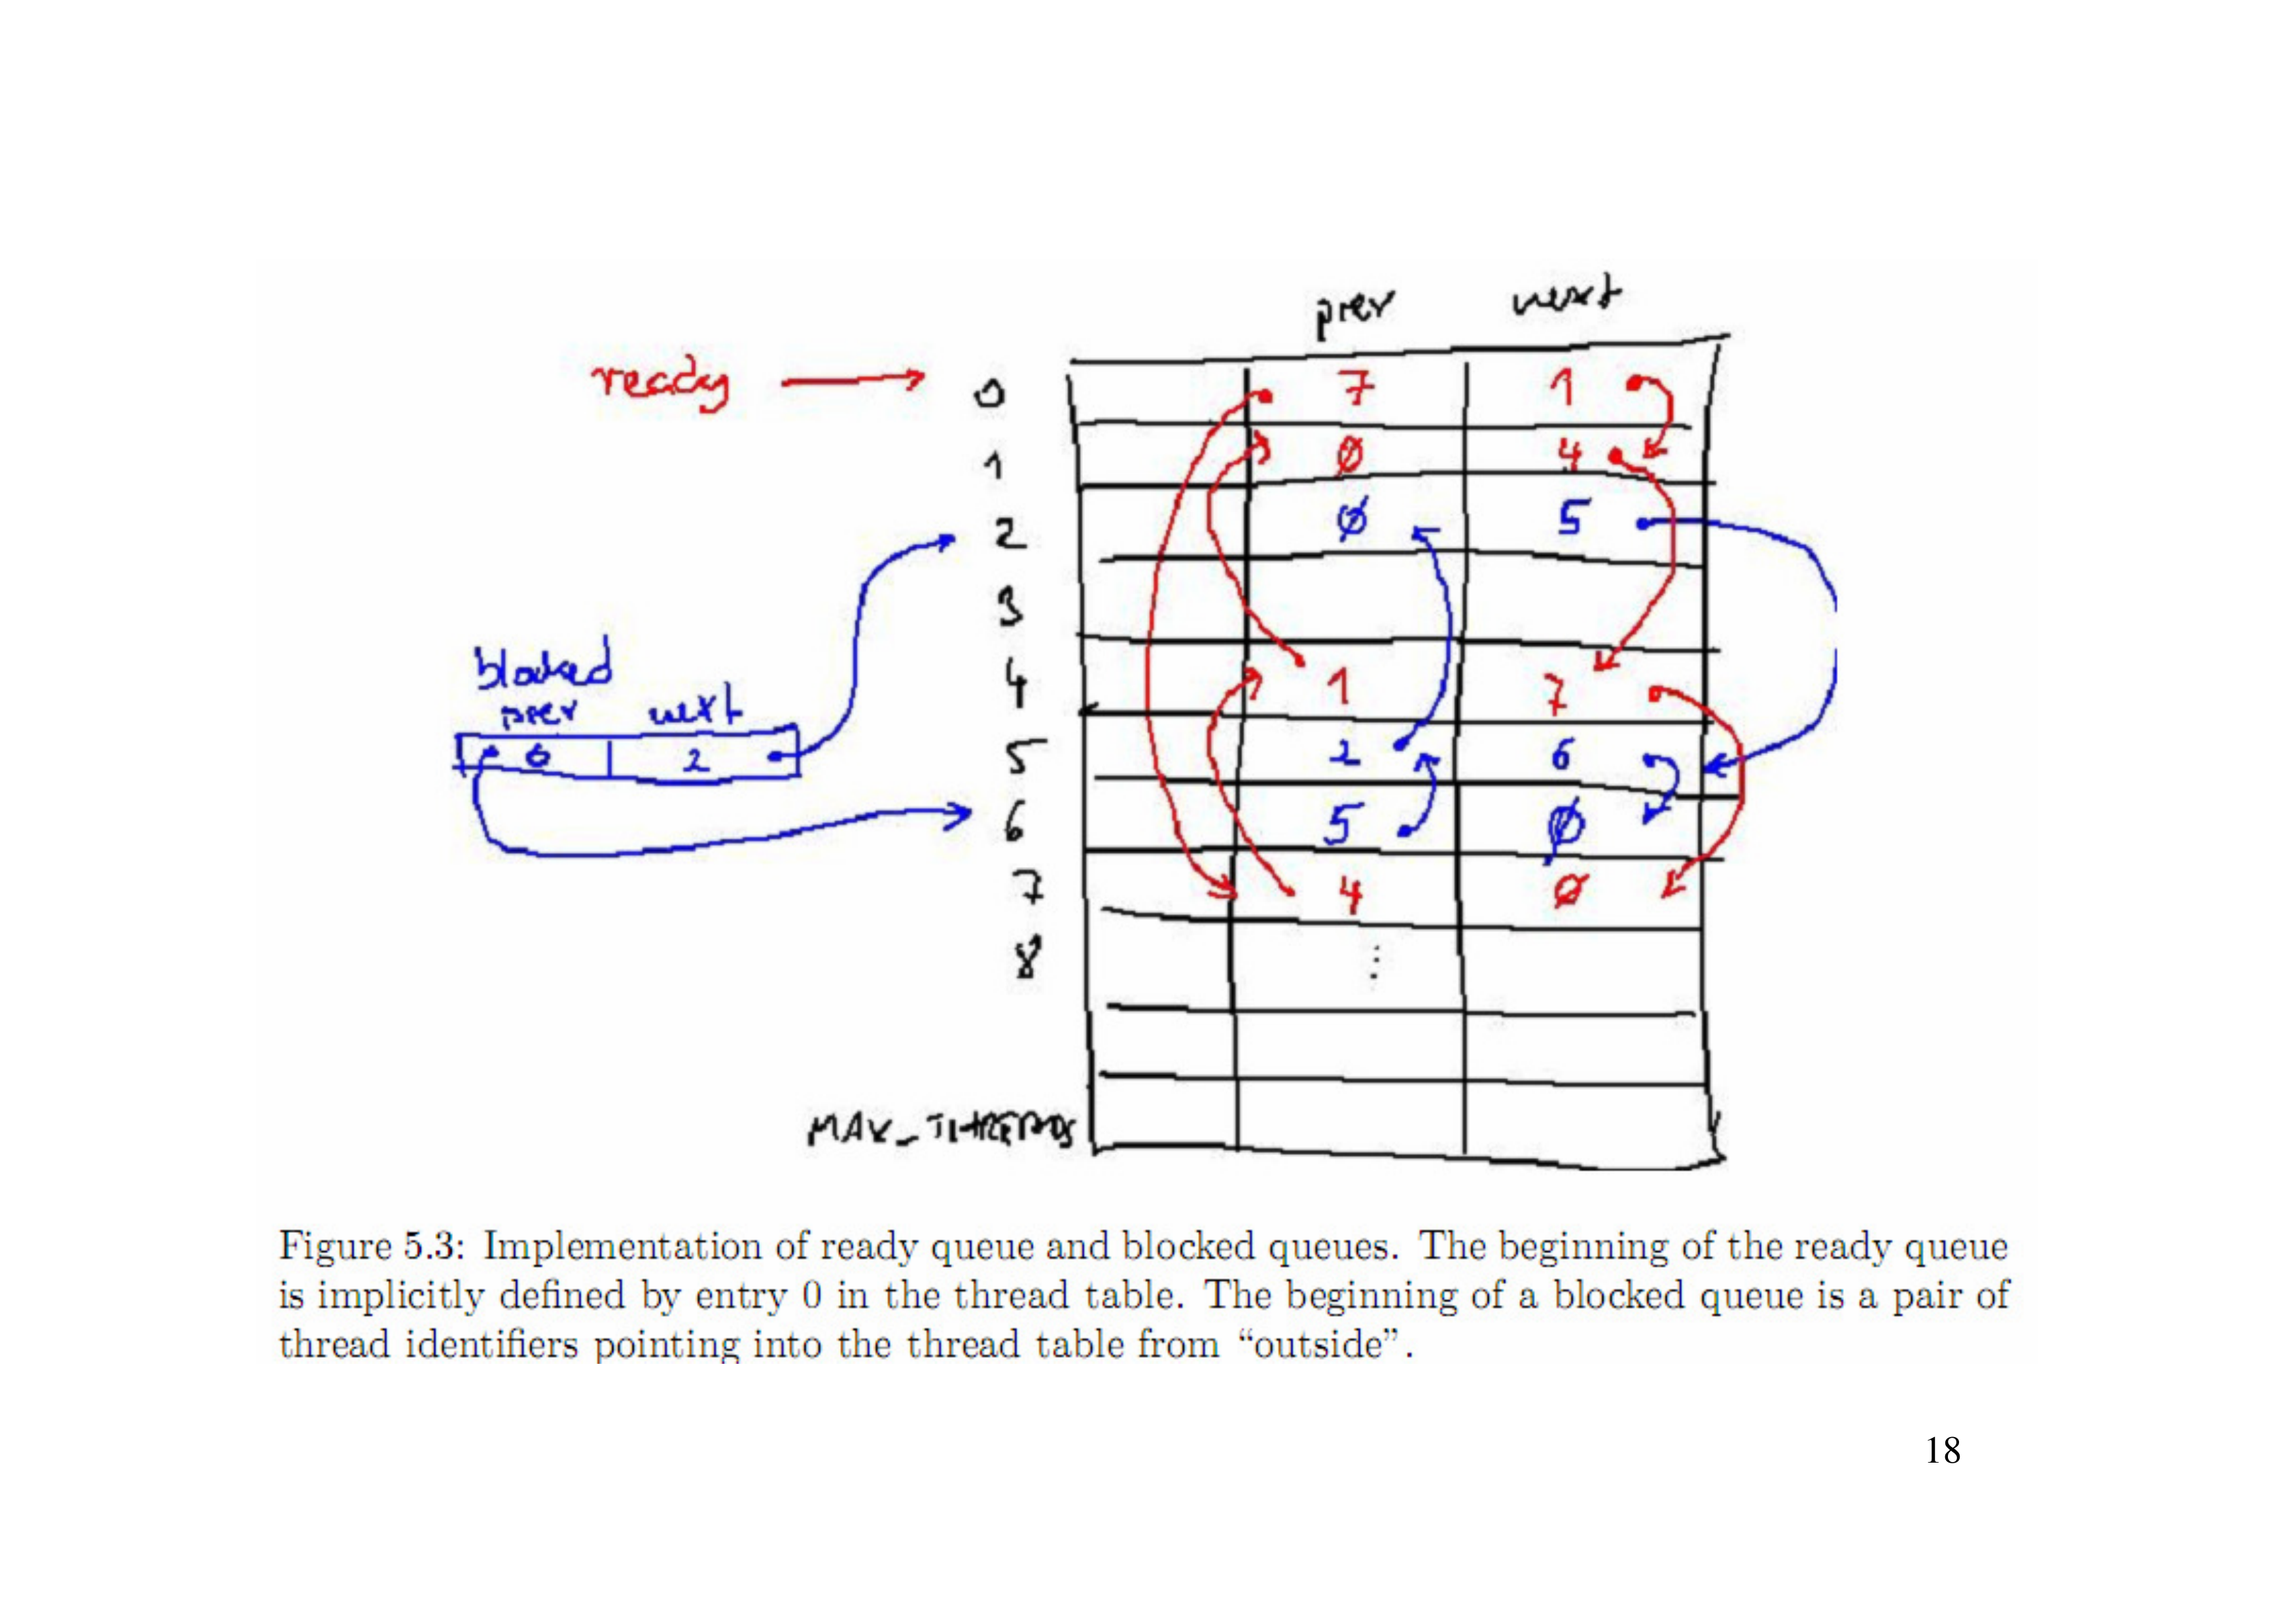 prev next
ready 0 7 1
1 0 4
2 0 5
3
blocked
4 1 7
prev next
6 2
5 2 6
6 5 0
7 4 0
8 ⋮
MAX_THREADS
Figure 5.3: Implementation of ready queue and blocked queues. The beginning of the ready queue
is implicitly defined by entry 0 in the thread table. The beginning of a blocked queue is a pair of
thread identifiers pointing into the thread table from “outside”.
18